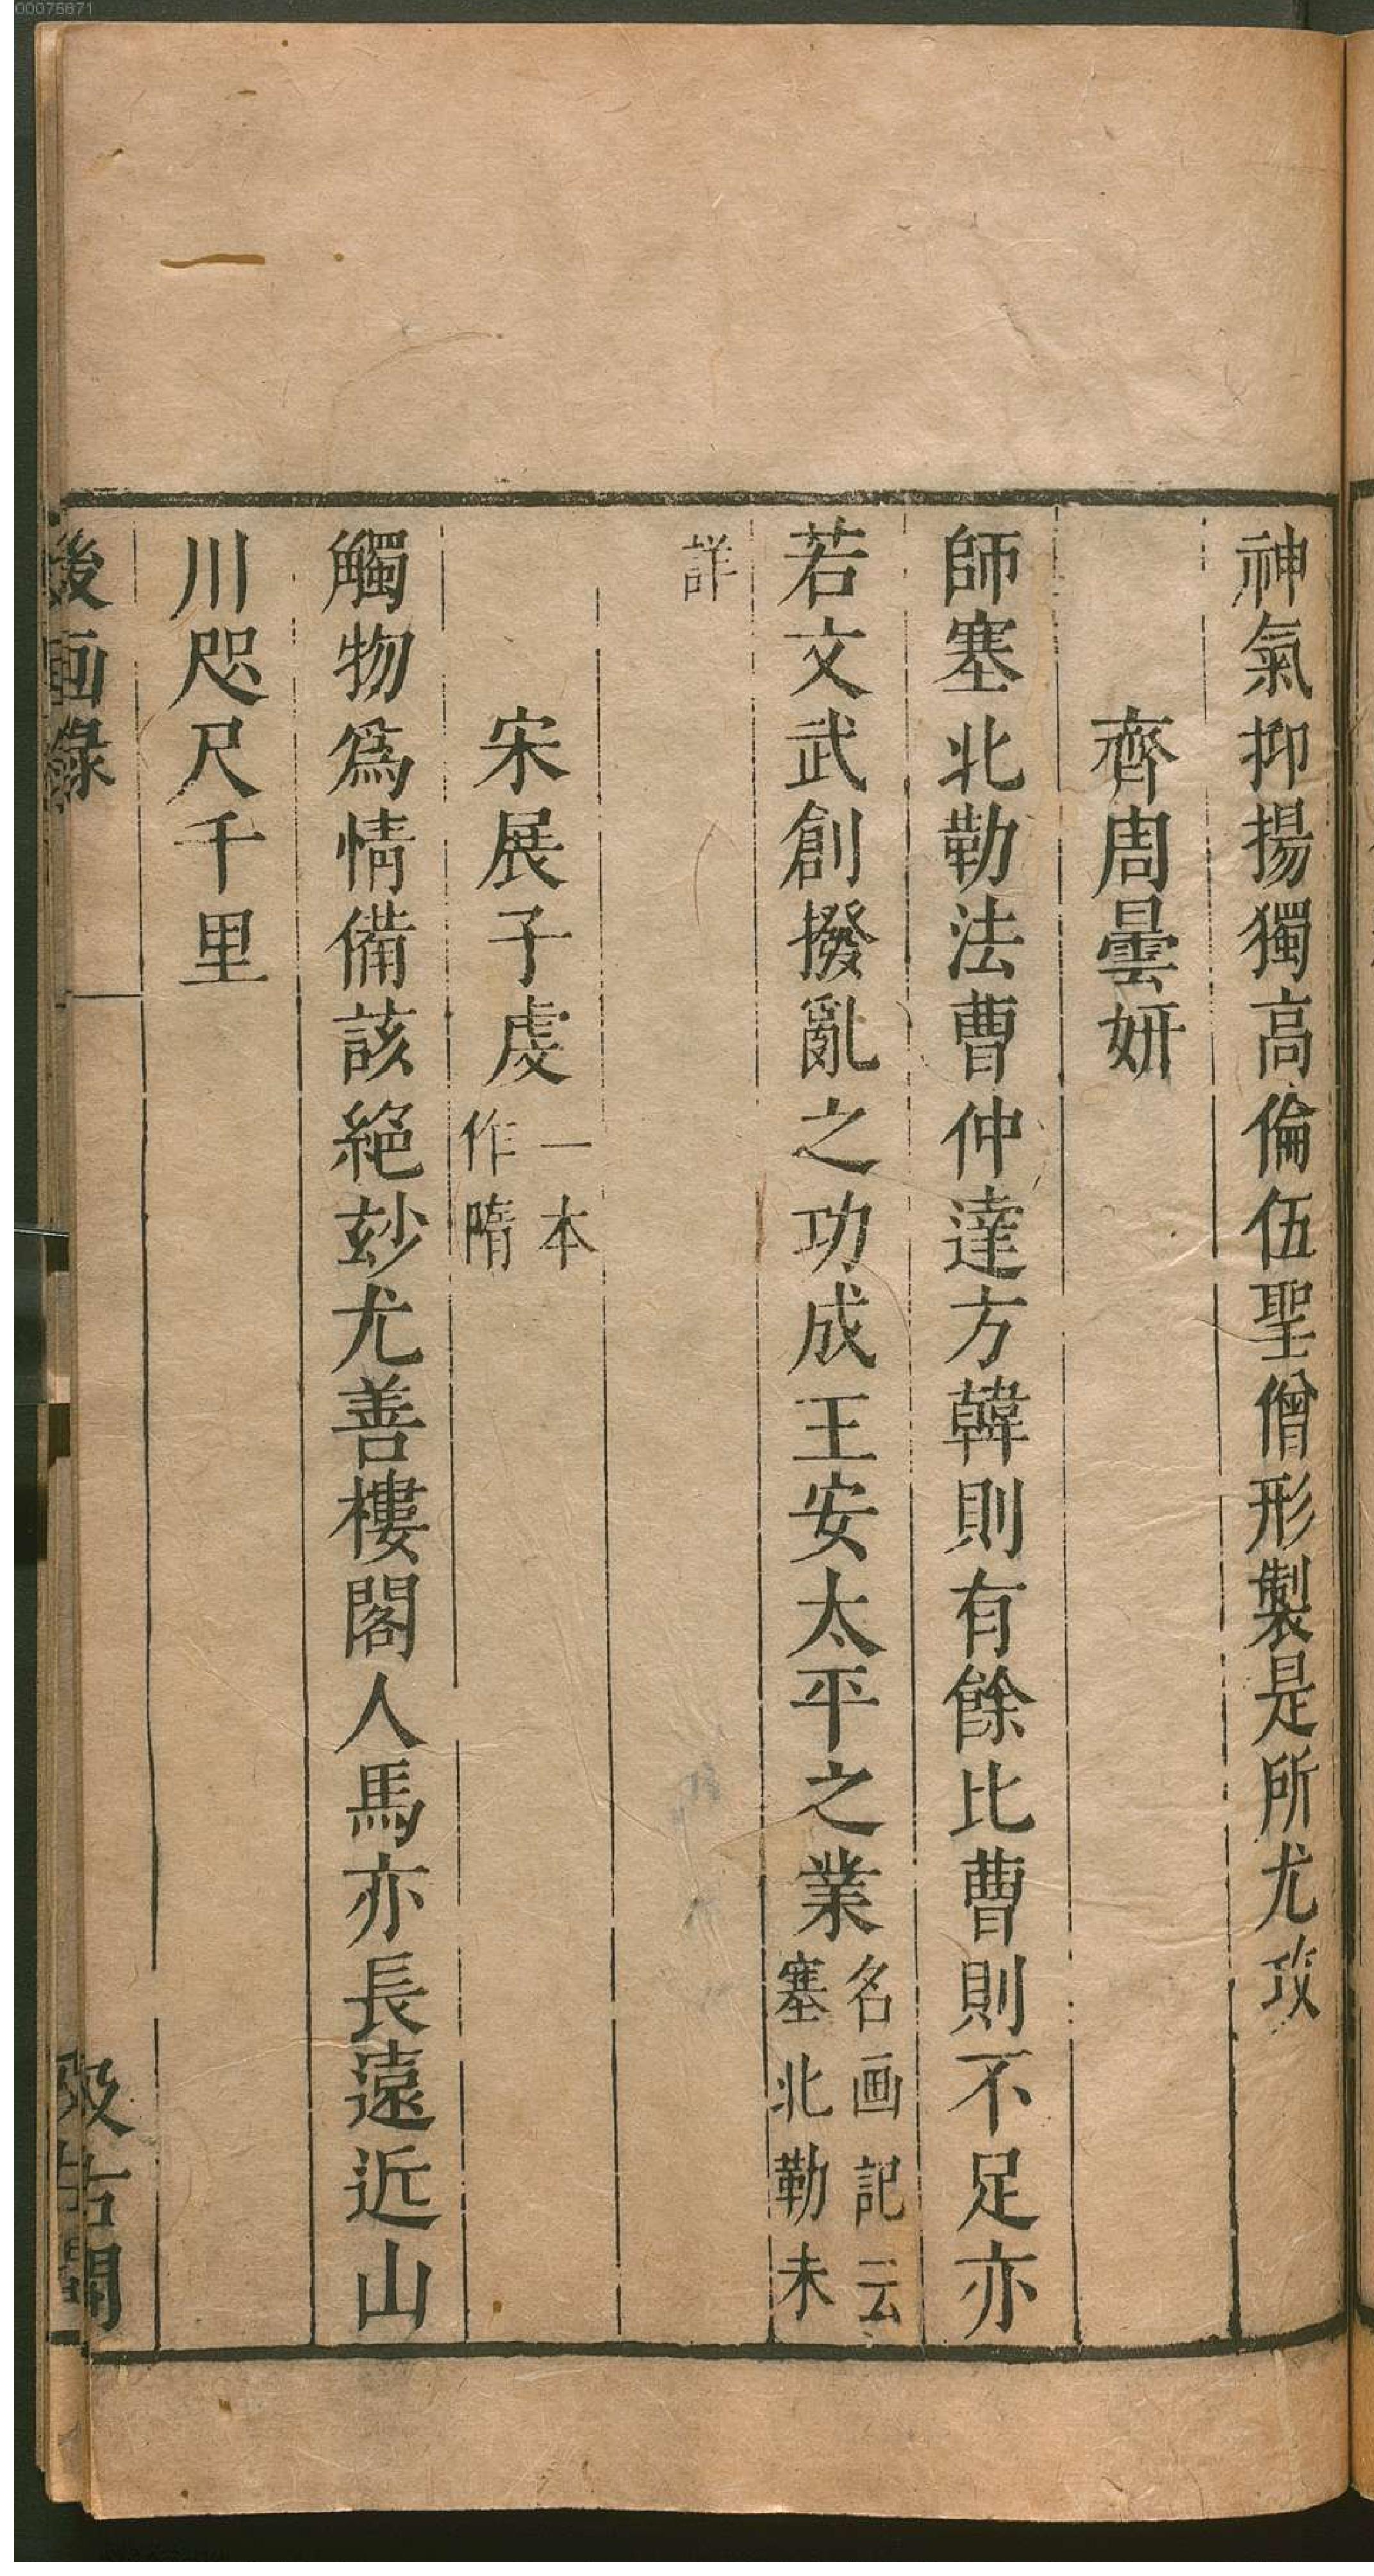 00075671
神氣抑揚獨高倫伍聖僧形製是所尤攻
齊周曇妍
師塞北勒法曹仲達方韓則有餘比曹則不足亦
若文武創撥亂之功成王安太平之業名画記云塞北勒未
詳
宋展子虔一本作隋
觸物爲情備該絕玅尤善樓閣人馬亦長遠近山
川咫尺千里
後画錄
汲古閣